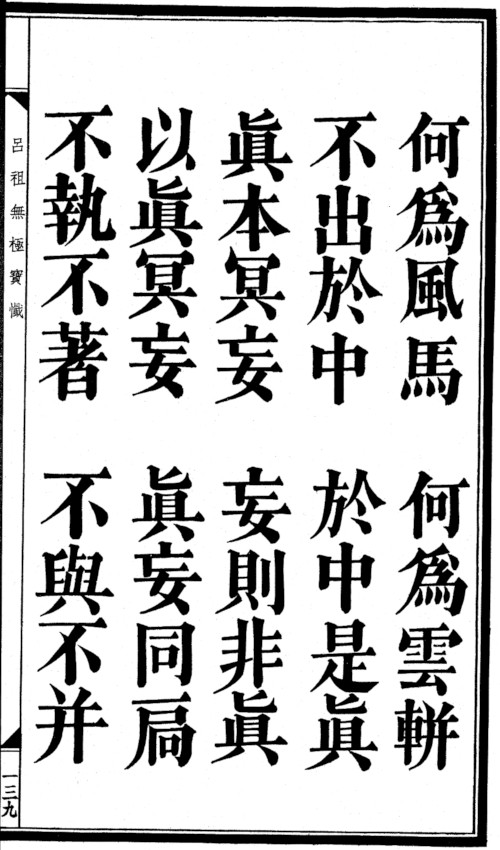 何爲風馬　何爲雲軿
不出於中　於中是眞
眞本冥妄　妄則非眞
以眞冥妄　眞妄同局
不執不著　不與不并
呂祖無極寶懺
一三九